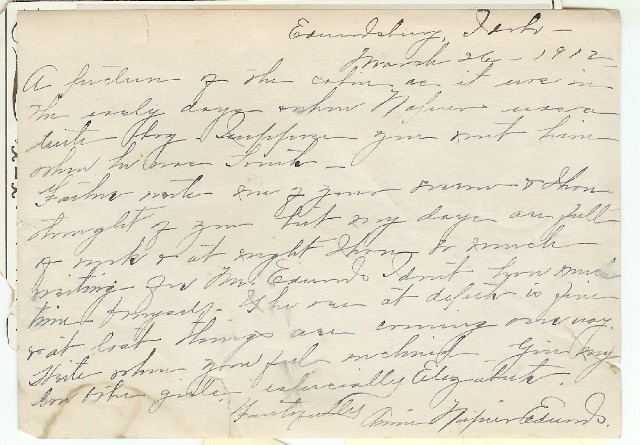 Edundsburg, Tark -
March 26 - 1912
A picture of the cabin as it was in
the early days when Napier was a
little boy Suppose you met him
when he was South -
Father wrote me of your and I have
thought of you but my days are full
of work & at night I have so much
writing for Mr. Edunds I don't have much
time to myself. The ore at depth is fine
& at last things are coming our way.
Write when you feel inclined. Give my
love to the girls, especially Elizabeth.
Faithfully Annie Napier Edunds.